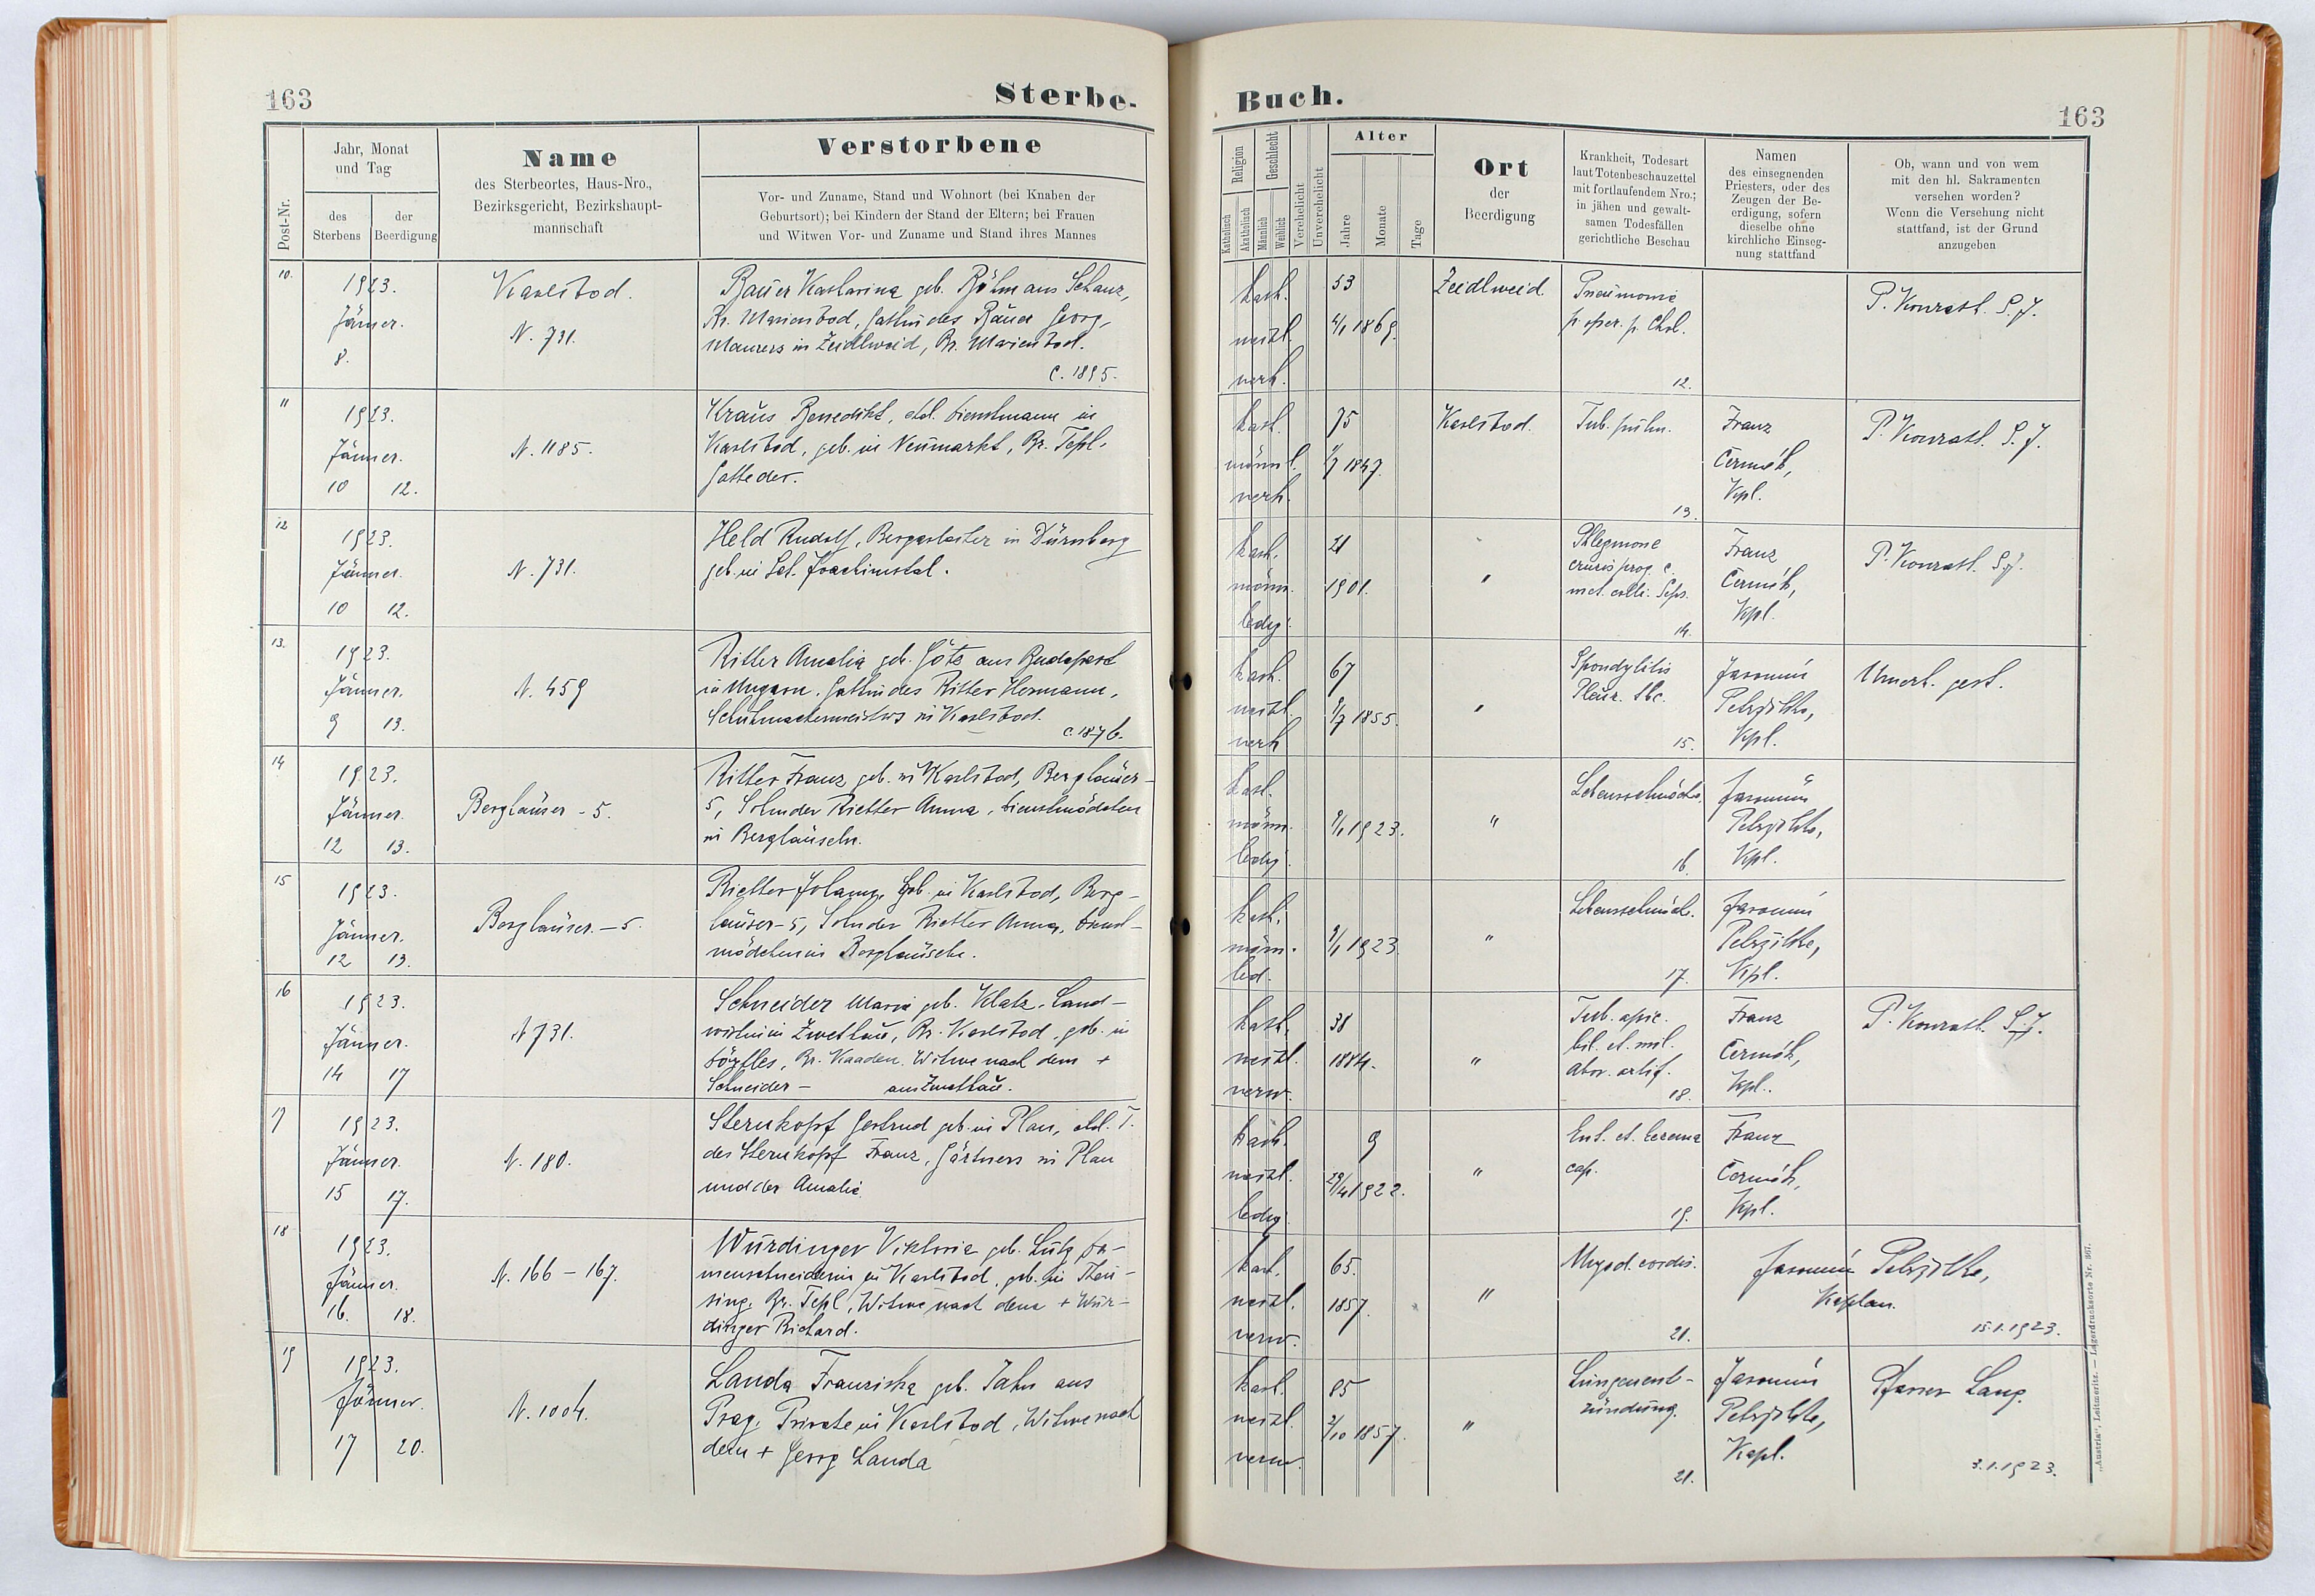 163
Sterbe-
Post-Nr.
Jahr, Monat
und Tag
des
Sterbens
der
Beerdigung
Name
des Sterbeortes, Haus-Nro.,
Bezirksgericht, Bezirkshaupt-
mannschaft
Verstorbene
Vor- und Zuname, Stand und Wohnort (bei Knaben der
Geburtsort); bei Kindern der Stand der Eltern; bei Frauen
und Witwen Vor- und Zuname und Stand ihres Mannes
10.
1923.
Jänner.
8.
Karlsbad.
N. 731.
Bauer Katharina geb. Böhm aus Schanz,
Br. Marienbad, Gattin des Bauer Georg,
Maurers in Zeidlweid, Br. Marienbad.
C. 1895.
11
1923.
Jänner.
10 12.
N. 1185.
Kraus Benedikt, Dienstmann in
Karlsbad, geb. in Neumarkt, Br. Tepl.
Gatte der.
12
1923.
Jänner.
10 12.
N. 731.
Held Rudolf, Bergarbeiter in Dürnberg
geb. in Sct. Joachimstal.
13.
1923.
Jänner.
9 13.
N. 459
Ritter Amalia geb. Götz aus Budapest
in Ungarn. Gattin des Ritter Hermann,
Schuhmachermeisters in Karlsbad.
C. 1876.
14
1923.
Jänner.
12 13.
Berghäuser - 5.
Ritter Franz, geb. in Karlsbad, Berghäuser-
5, Sohn der Rietter Anna, Dienstmädchen
in Berghäuseln.
15
1923.
Jänner.
12 13.
Berghäuser. - 5.
Rietter Johann, geb. in Karlsbad, Berg-
häuser-5, Sohn der Rietter Anna, Dienst-
mädchen in Berghäuseln.
16
1923.
Jänner.
14 17
N 731.
Schneider Maria geb. Klatz. Land-
wirtin in Zwetbau, Br. Karlsbad, geb. in
Br. Kaaden. Witwe nach dem +
Schneider - aus Zwetbau.
17
1923.
Jänner.
15 17.
N. 180.
Sternkopf Gertrud geb. in Plan, T.
des Sternkopf Franz, Gärtners in Plan
und der Amalie.
18
1923.
Jänner.
16. 18.
N. 166 - 167.
Wurdinger Viktoria geb. Lutz Da-
menschneiderin in Karlsbad, geb. in Theu-
sing. Br. Tepl, Witwe nach dem + Wur-
dinger Richard.
19
1923.
Jänner.
17 20.
N. 1004.
Landa Franziska geb. Jahn aus
Prag, Private in Karlsbad, Witwe nach
dem + Georg Landa
Buch.
163
Religion
Katholisch
Akatholisch
Geschlecht
Männlich
Weiblich
Verehelicht
Unverehelicht
Alter
Jahre
Monate
Tage
Ort
der
Beerdigung
Krankheit, Todesart
laut Totenbeschauzettel
mit fortlaufendem Nro.;
in jähen und gewalt-
samen Todesfällen
gerichtliche Beschau
Namen
des einsegnenden
Priesters, oder des
Zeugen der Be-
erdigung, sofern
dieselbe ohne
kirchliche Einseg-
nung stattfand
Ob, wann und von wem
mit den hl. Sakramenten
versehen worden?
Wenn die Versehung nicht
stattfand, ist der Grund
anzugeben
kath.
weibl.
verh.
53
4/1 1869.
Zeidlweid.
Pneumonie
p. oper. p. Chol.
12.
P. Konrath. S. J.
kath.
männl.
verh.
75
1847.
Karlsbad.
Tub. pulm.
13.
Franz
Čermák,
Kpl.
P. Konrath. S. J.
kath.
männ.
ledig.
21
1901.
"
Phlegmone
cruris prog. c.
14.
Franz
Čermák,
Kpl.
P. Konrath. S. J.
kath.
weibl.
verh
67
9/7 1855.
"
Spondylitis
Pleur. tbc.
15.
Jaromír
Petržilka,
Kpl.
Unerh. gest.
kath.
männ.
ledig.
9/1 1923.
"
Lebensschwäche.
16.
Jaromír
Petržilka,
Kpl.
kath.
männ.
led.
9/1 1923
"
Lebensschwäch.
17.
Jaromír
Petržilka,
Kpl.
kath.
weibl.
verw.
38
1884.
"
Tub. apic.
bil. et. mil.
abor. artif.
18.
Franz
Čermák,
Kpl.
P. Konrath. S. J.
kath.
weibl.
ledig.
9
29/4 1922.
"
Ent. et. Eczema
cap.
19.
Franz
Čermák,
Kpl.
kath.
weibl.
verw.
65.
1857.
"
Myod. cordis.
21.
Jaromír Petržilka,
Kaplan.
15.1.1923.
kath.
weibl.
verw.
85
2/10 1857.
"
Lungenent-
zündung.
21.
Jaromír
Petržilka,
Kapl.
Pfarrer Lang.
3.1.1923.
„Austria“, Leitmeritz. — Lagerdrucksorte Nr. 367.